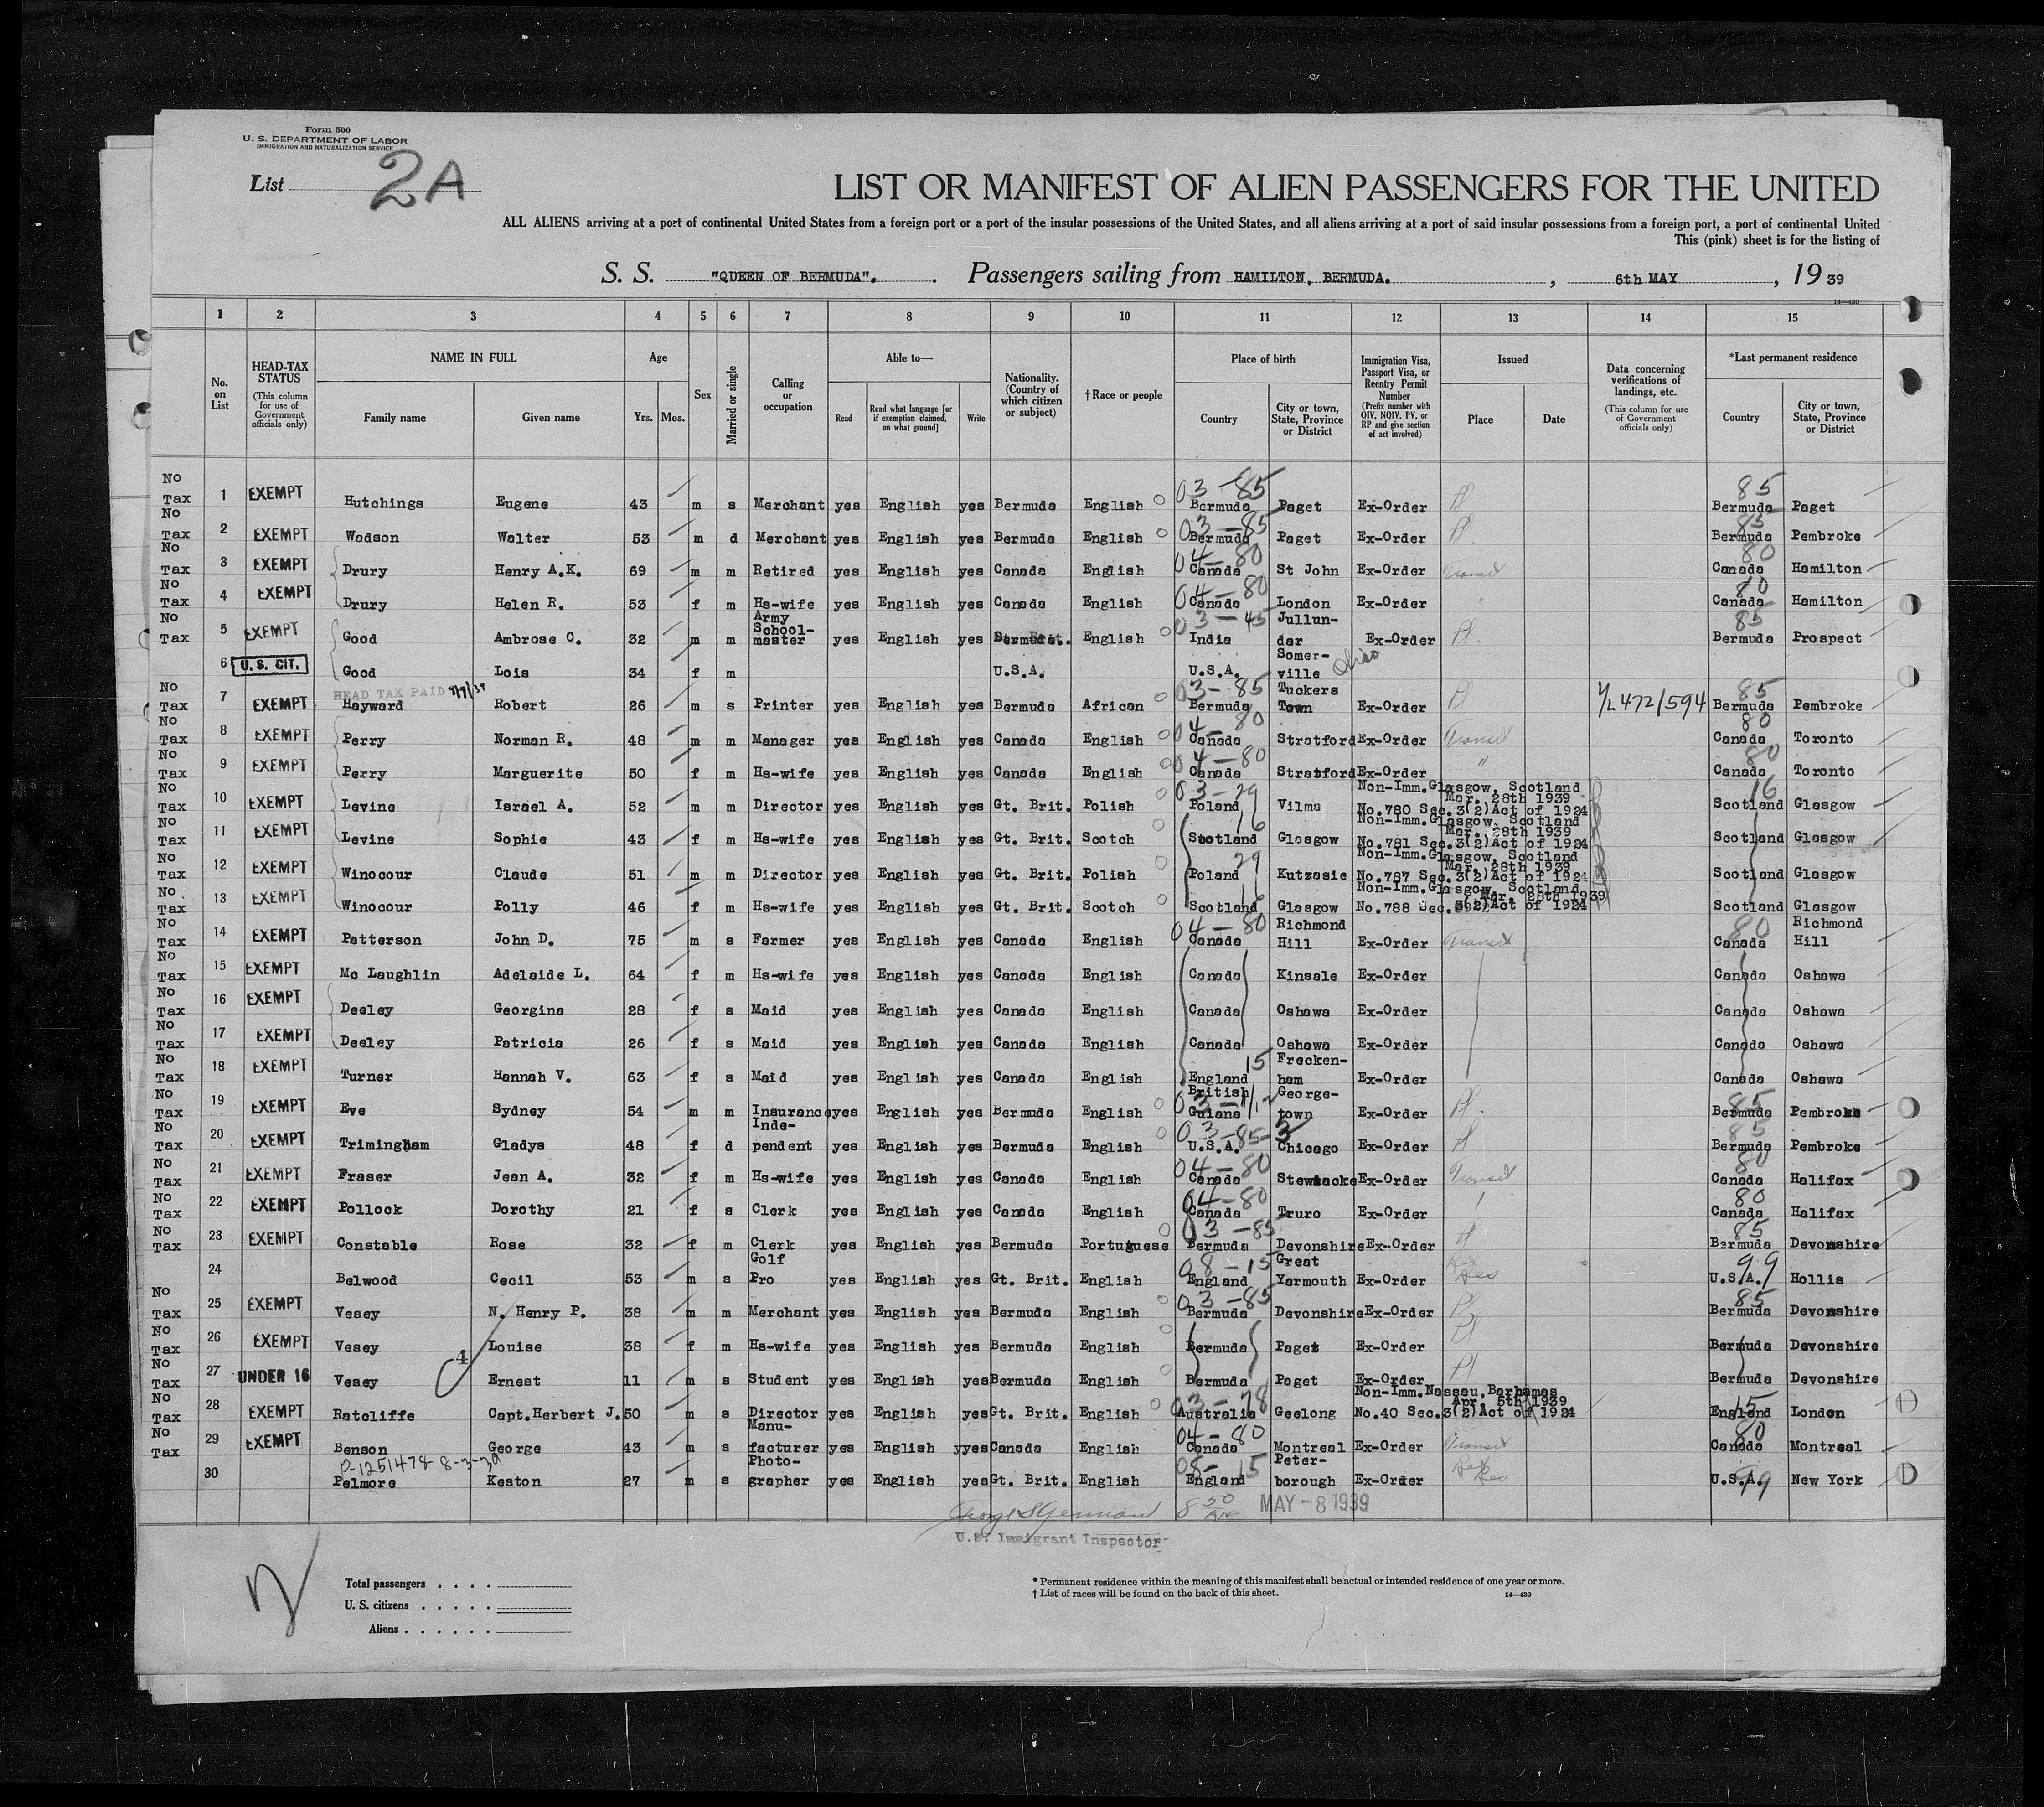 Form 500
U. S. DEPARTMENT OF LABOR
IMMIGRATION AND NATURALIZATION SERVICE
List 2A
LIST OR MANIFEST OF ALIEN PASSENGERS FOR THE UNITED
ALL ALIENS arriving at a port of continental United States from a foreign port or a port of the insular possessions of the United States, and all aliens arriving at a port of said insular possessions from a foreign port, a port of continental United
This (pink) sheet is for the listing of
S. S. "QUEEN OF BERMUDA". Passengers sailing from HAMILTON, BERMUDA. , 6th MAY , 19 39
14—430
1 2 3 4 5 6 7 8 9 10 11 12 13 14 15
No. on List
HEAD-TAX STATUS (This column for use of Government officials only)
NAME IN FULL Family name Given name
Age Yrs. Mos.
Sex
Married or single
Calling or occupation
Able to— Read Read what language [or if exemption claimed, on what ground] Write
Nationality. (Country of which citizen or subject)
†Race or people
Place of birth Country City or town, State, Province or District
Immigration Visa, Passport Visa, or Reentry Permit Number (Prefix number with QIV, NQIV, PV, or RP and give section of act involved)
Issued Place Date
Data concerning verifications of landings, etc. (This column for use of Government officials only)
*Last permanent residence Country City or town, State, Province or District
No Tax 1 EXEMPT Hutchings Eugene 43 m s Merchant yes English yes Bermuda English 03-85 Bermuda Paget Ex-Order 85 Bermuda Paget
No Tax 2 EXEMPT Wadson Walter 53 m d Merchant yes English yes Bermuda English 03-85 Bermuda Paget Ex-Order 85 Bermuda Pembroke
No Tax 3 EXEMPT Drury Henry A.K. 69 m m Retired yes English yes Canada English 04-80 Canada St John Ex-Order Transit 80 Canada Hamilton
No Tax 4 EXEMPT Drury Helen R. 53 f m Hs-wife yes English yes Canada English 04-80 Canada London Ex-Order 80 Canada Hamilton
No Tax 5 EXEMPT Good Ambrose C. 32 m m Army School-master yes English yes English 03-45 India Jullun-dar Ex-Order 85 Bermuda Prospect
6 U.S. CIT. Good Lois 34 f m U.S.A. U.S.A. Somer-ville Ohio
HEAD TAX PAID
No Tax 7 EXEMPT Hayward Robert 26 m s Printer yes English yes Bermuda African 03-85 Bermuda Tuckers Town Ex-Order 472/594 85 Bermuda Pembroke
No Tax 8 EXEMPT Perry Norman R. 48 m m Manager yes English yes Canada English 04-80 Canada Stratford Ex-Order Transit 80 Canada Toronto
No Tax 9 EXEMPT Perry Marguerite 50 f m Hs-wife yes English yes Canada English 04-80 Canada Stratford Ex-Order " 80 Canada Toronto
No Tax 10 EXEMPT Levine Israel A. 52 m m Director yes English yes Gt. Brit. Polish 03-29 Poland Vilma Non-Imm. Glasgow, Scotland Mar. 28th 1939 No.780 Sec.3(2)Act of 1924 16 Scotland Glasgow
No Tax 11 EXEMPT Levine Sophie 43 f m Hs-wife yes English yes Gt. Brit. Scotch 16 Scotland Glasgow Non-Imm. Glasgow, Scotland Mar. 28th 1939 No.781 Sec.3(2)Act of 1924 Scotland Glasgow
No Tax 12 EXEMPT Winocour Claude 51 m m Director yes English yes Gt. Brit. Polish 29 Poland Kutzasie Non-Imm. Glasgow, Scotland Mar. 28th 1939 No.787 Sec.3(2)Act of 1924 Scotland Glasgow
No Tax 13 EXEMPT Winocour Polly 46 f m Hs-wife yes English yes Gt. Brit. Scotch 16 Scotland Glasgow Non-Imm. Glasgow, Scotland Mar. 28th 1939 No.788 Sec.3(2)Act of 1924 Scotland Glasgow
No Tax 14 EXEMPT Patterson John D. 75 m s Farmer yes English yes Canada English 04-80 Canada Richmond Hill Ex-Order Transit 80 Canada Richmond Hill
No Tax 15 EXEMPT Mc Laughlin Adelaide L. 64 f m Hs-wife yes English yes Canada English Canada Kinsale Ex-Order Canada Oshawa
No Tax 16 EXEMPT Deeley Georgina 28 f s Maid yes English yes Canada English Canada Oshawa Ex-Order Canada Oshawa
No Tax 17 EXEMPT Deeley Patricia 26 f s Maid yes English yes Canada English Canada Oshawa Ex-Order Canada Oshawa
No Tax 18 EXEMPT Turner Hannah V. 63 f s Maid yes English yes Canada English 15 England Frecken-ham Ex-Order Canada Oshawa
No Tax 19 EXEMPT Eve Sydney 54 m m Insurance yes English yes Bermuda English British Guiana George-town Ex-Order 85 Bermuda Pembroke
No Tax 20 EXEMPT Trimingham Gladys 48 f d Inde-pendent yes English yes Bermuda English 03-85-3 U.S.A. Chicago Ex-Order 85 Bermuda Pembroke
No Tax 21 EXEMPT Fraser Jean A. 32 f m Hs-wife yes English yes Canada English 04-80 Canada Stewiacke Ex-Order Transit 80 Canada Halifax
No Tax 22 EXEMPT Pollock Dorothy 21 f s Clerk yes English yes Canada English 04-80 Canada Truro Ex-Order 80 Canada Halifax
No Tax 23 EXEMPT Constable Rose 32 f m Clerk yes English yes Bermuda Portuguese 03-85 Bermuda Devonshire Ex-Order 85 Bermuda Devonshire
24 Belwood Cecil 53 m s Golf Pro yes English yes Gt. Brit. English 08-15 England Great Yarmouth Ex-Order Res 99 U.S.A. Hollis
No Tax 25 EXEMPT Vesey N. Henry P. 38 m m Merchant yes English yes Bermuda English 03-85 Bermuda Devonshire Ex-Order 85 Bermuda Devonshire
No Tax 26 EXEMPT Vesey Louise 38 f m Hs-wife yes English yes Bermuda English Bermuda Paget Ex-Order Bermuda Devonshire
No Tax 27 UNDER 16 Vesey Ernest 11 m s Student yes English yes Bermuda English Bermuda Paget Ex-Order Bermuda Devonshire
No Tax 28 EXEMPT Ratcliffe Capt. Herbert J. 50 m s Director yes English yes Gt. Brit. English 03-78 Australia Geelong Non-Imm. Nassau, Barhamas Apr. 5th 1939 No.40 Sec.3(2)Act of 1924 15 England London
No Tax 29 EXEMPT Benson George 43 m s Manu-facturer yes English yyes Canada English 04-80 Canada Montreal Ex-Order Transit 80 Canada Montreal
30 Pelmore Keston 27 m s Photo-grapher yes English yes Gt. Brit. English 08-15 England Peter-borough Ex-Order Res 99 U.S.A. New York
MAY -8 1939
U.S. Immigrant Inspector
Total passengers . . . .
U. S. citizens . . . . .
Aliens . . . . . .
* Permanent residence within the meaning of this manifest shall be actual or intended residence of one year or more.
† List of races will be found on the back of this sheet.
14—430